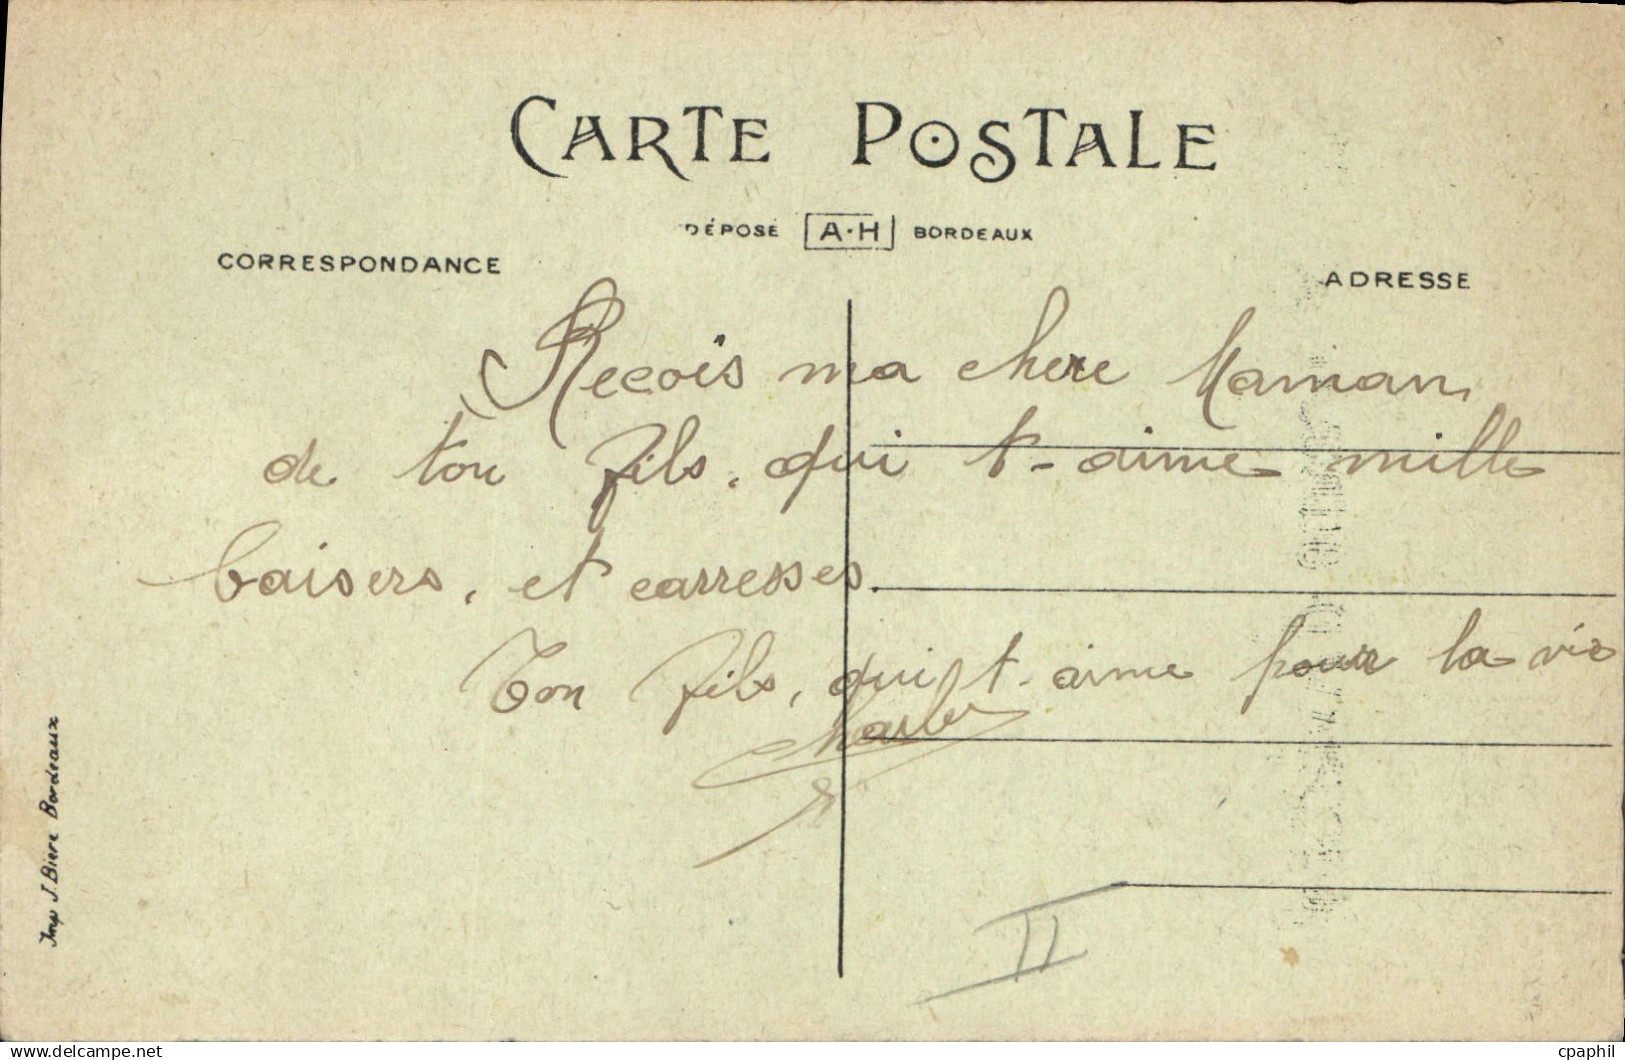 CARTE POSTALE
DÉPOSÉ A·H BORDEAUX
CORRESPONDANCE
ADRESSE
Recois ma chere Maman,
de ton fils, qui t-aime mille
baisers, et carresses.
Ton fils, qui t-aime pour la vie
Imp J. Biere Bordeaux
II
cpaphil